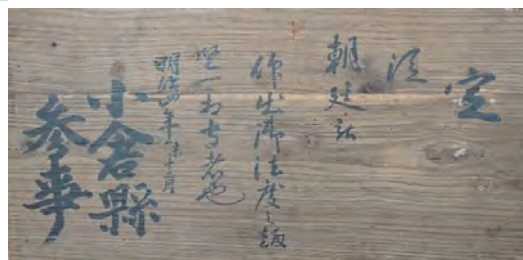 定
従
朝廷被
仰出御法度之趣
堅可相守者也
明治四年辛未十二月
小倉縣
参事